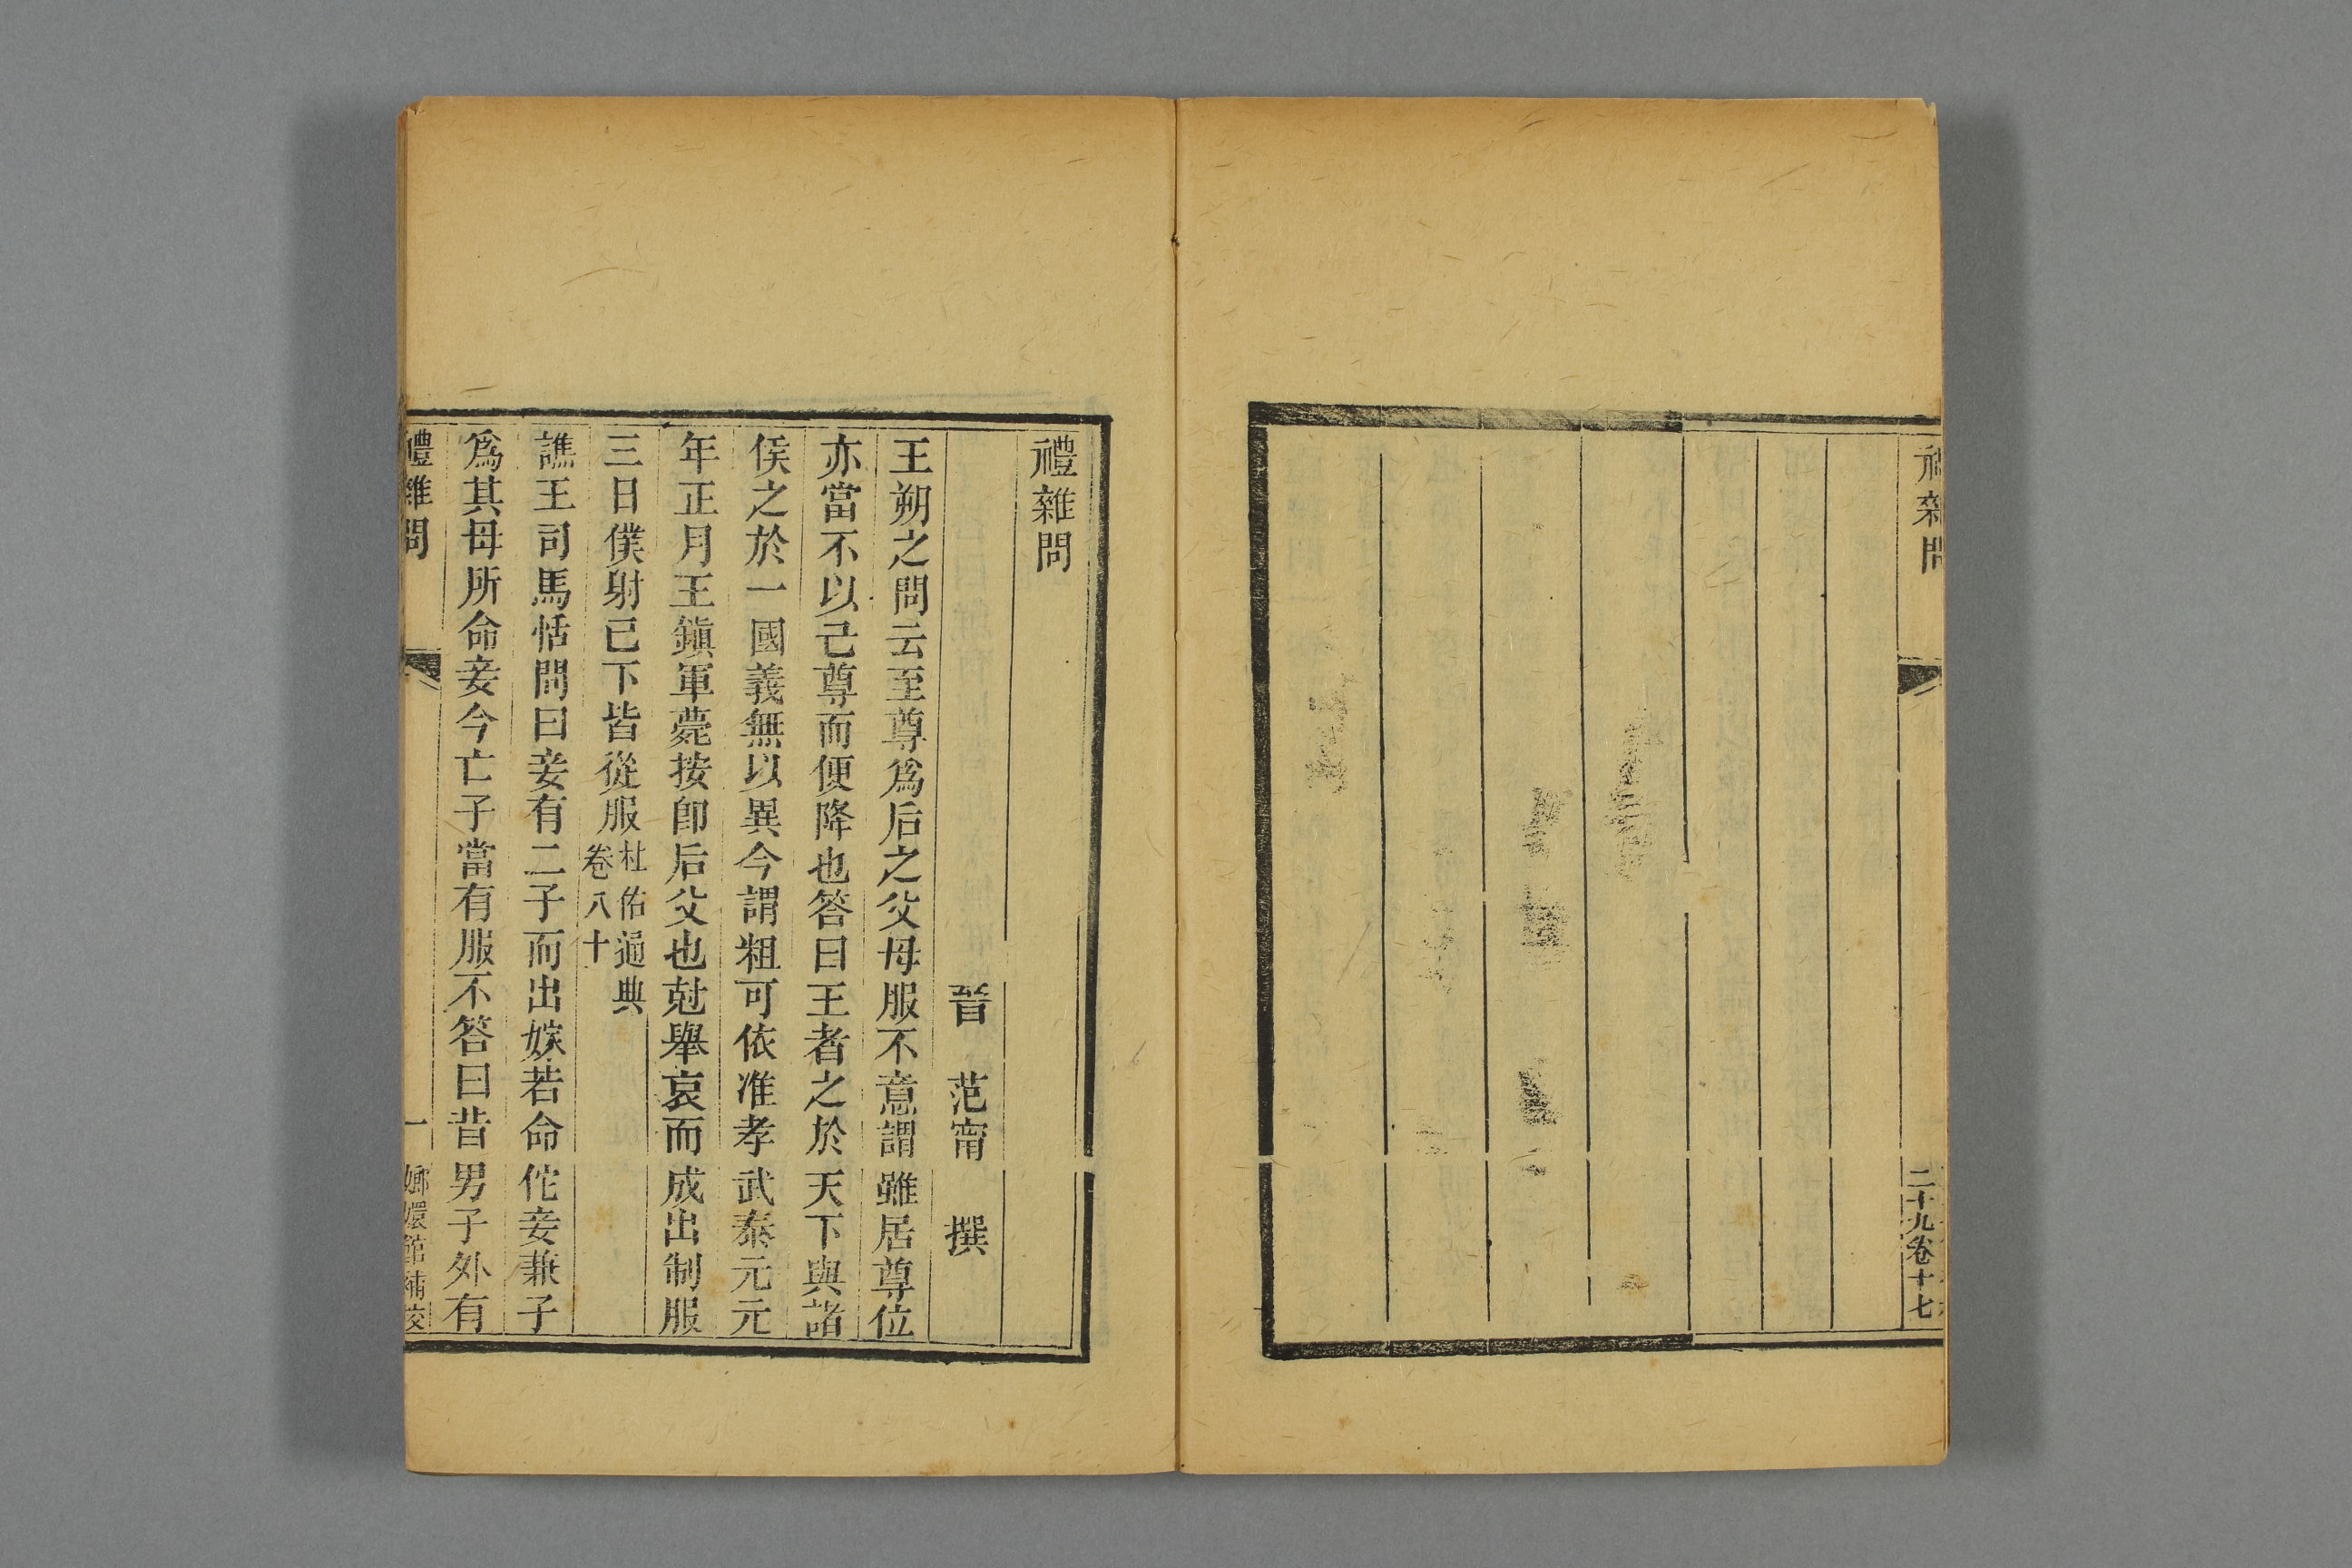 禮雜問
二十九卷十七
禮雜問
晉 范甯 撰
王朔之問云至尊爲后之父母服不意謂雖居尊位
亦當不以己尊而便降也答曰王者之於天下與諸
侯之於一國義無以異今謂粗可依准孝武泰元元
年正月王鎮軍薨按卽后父也尅舉哀而成出制服
三日僕射已下皆從服杜佑通典
卷八十
譙王司馬恬問曰妾有二子而出嫁若命佗妾兼子
爲其母所命妾今亡子當有服不答曰昔男子外有
禮雜問 一 嫏嬛館補校